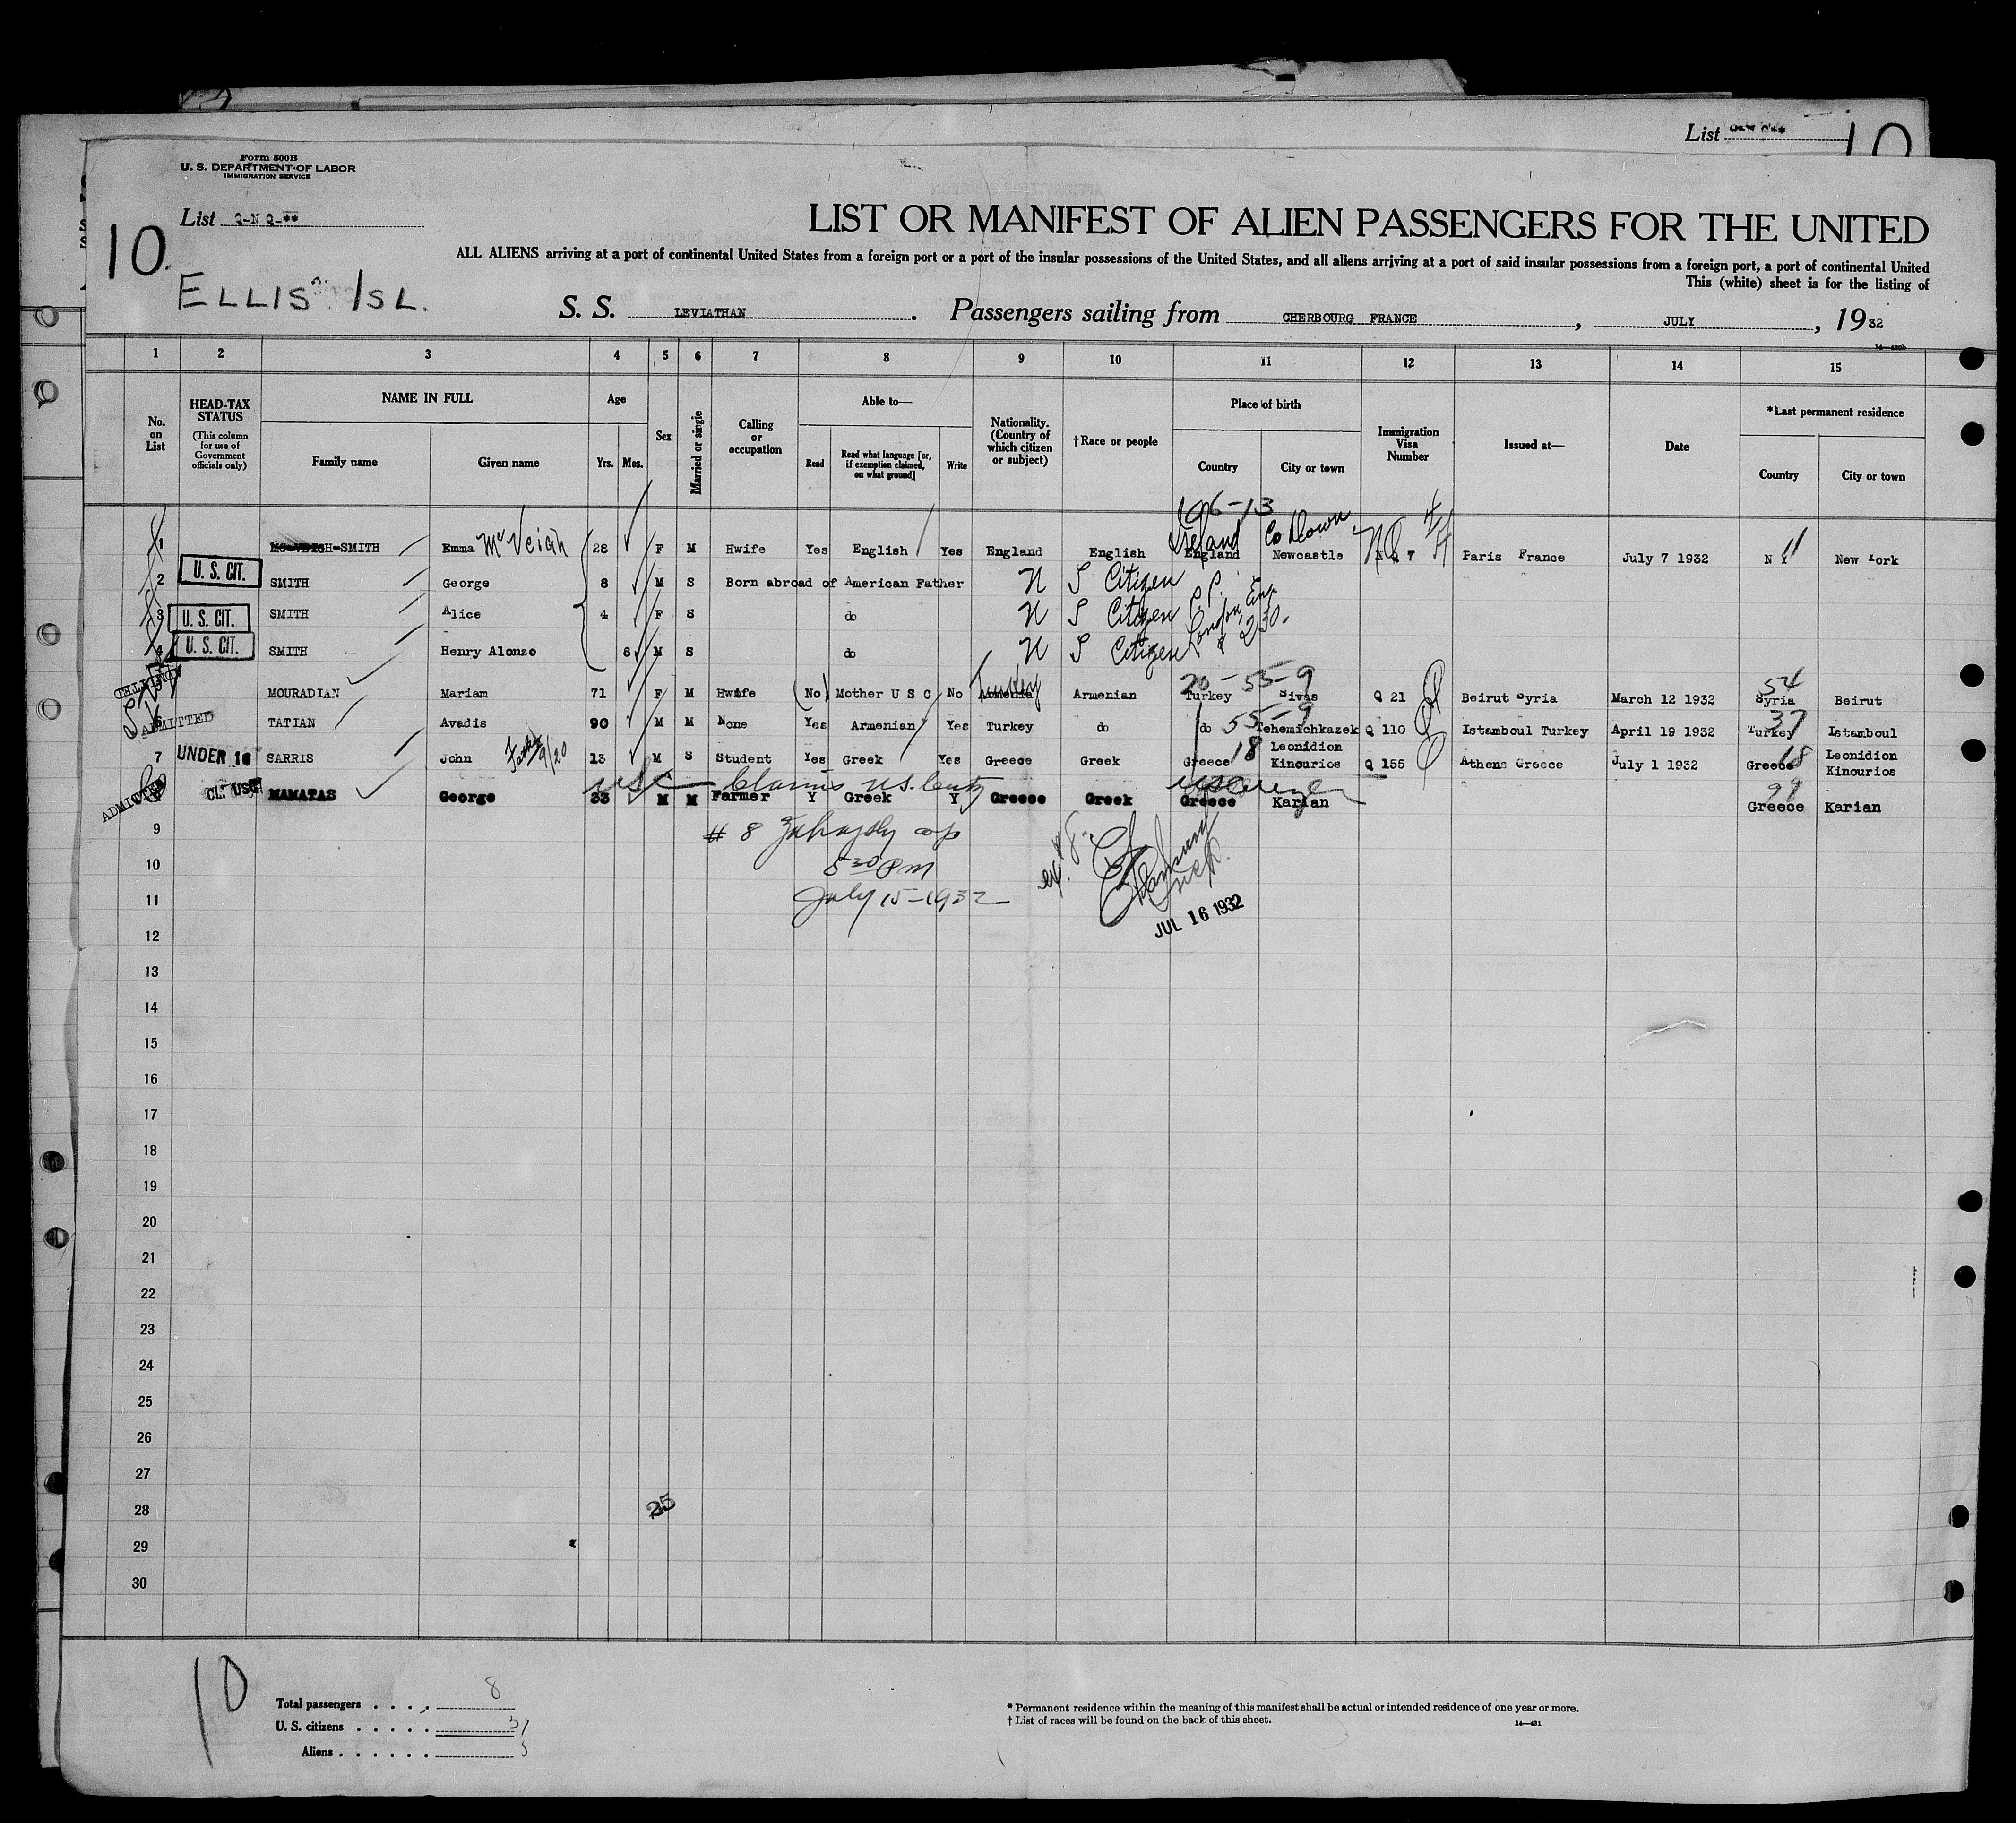 List
10
Form 500B
U. S. DEPARTMENT OF LABOR
IMMIGRATION SERVICE
List Q-N Q-**
10.
ELLIS ISL.
LIST OR MANIFEST OF ALIEN PASSENGERS FOR THE UNITED
ALL ALIENS arriving at a port of continental United States from a foreign port or a port of the insular possessions of the United States, and all aliens arriving at a port of said insular possessions from a foreign port, a port of continental United
This (white) sheet is for the listing of
S. S. LEVIATHAN . Passengers sailing from CHERBOURG FRANCE , JULY , 1932
14—430b
1 2 3 4 5 6 7 8 9 10 11 12 13 14 15
No. on List
HEAD-TAX STATUS (This column for use of Government officials only)
NAME IN FULL
Family name
Given name
Age
Yrs. Mos.
Sex
Married or single
Calling or occupation
Able to—
Read
Read what language [or, if exemption claimed, on what ground]
Write
Nationality. (Country of which citizen or subject)
†Race or people
Place of birth
Country
City or town
Immigration Visa Number
Issued at—
Date
*Last permanent residence
Country
City or town
106-13
Ireland Co Down
1 SMITH Emma McVeigh 28 F M Hwife Yes English Yes England English England Newcastle N Q 7 Paris France July 7 1932 N Y New York
2 U. S. CIT. SMITH George 8 M S Born abroad of American Father U S Citizen
3 U. S. CIT. SMITH Alice 4 F S do U S Citizen P.P.
London, Eng.
# 230.
4 U. S. CIT. SMITH Henry Alonzo 8 M S do U S Citizen
Turkey 20-55-9 54
ADMITTED MOURADIAN Mariam 71 F M Hwife No Mother U S C No Armenia Armenian Turkey Sivas Q 21 Beirut Syria March 12 1932 Syria Beirut
55-9 37
ADMITTED TATIAN Avadis 90 M M None Yes Armenian Yes Turkey do do Tehemichkazek Q 110 Istamboul Turkey April 19 1932 Turkey Istamboul
7 UNDER 16 SARRIS John 9/20 13 M S Student Yes Greek Yes Greece Greek Greece 18 Leonidion Kinourios Q 155 Athens Greece July 1 1932 Greece 18 Leonidion Kinourios
USC Claims U.S. 99
ADMITTED CL. USC MAMATAS George 33 M M Farmer Y Greek Y Greece Greek Greece Karian Greece Karian
9
# 8
10
5 30 PM
11
July 15-1932
JUL 16 1932
12
13
14
15
16
17
18
19
20
21
22
23
24
25
26
27
28
35
29
30
10
Total passengers . . . . 8
U. S. citizens . . . . .
Aliens . . . . . .
* Permanent residence within the meaning of this manifest shall be actual or intended residence of one year or more.
† List of races will be found on the back of this sheet.
14—431